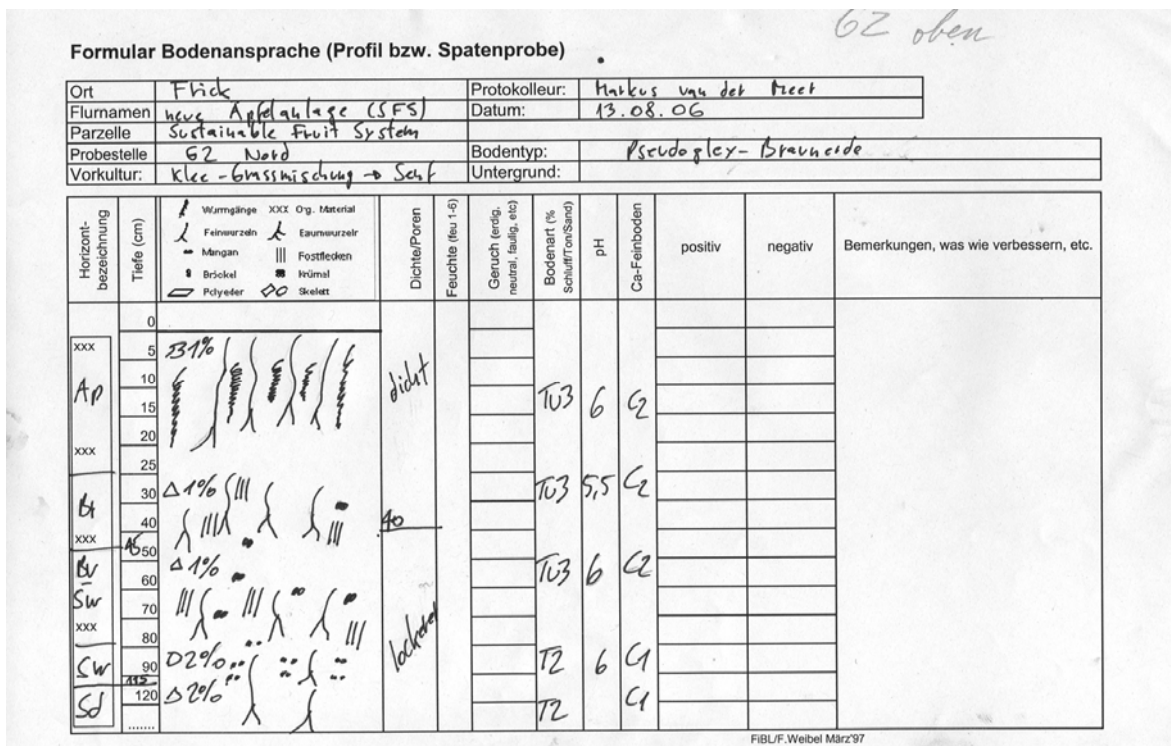 62 oben
Formular Bodenansprache (Profil bzw. Spatenprobe)
Ort Frick Protokolleur: Markus van der Meer
Flurnamen neue Apfelanlage (SFS) Datum: 13.08.06
Parzelle Sustainable Fruit System
Probestelle 62 Nord Bodentyp: Pseudogley-Braunerde
Vorkultur: Klee-Grassmischung → Senf Untergrund:
Horizont-bezeichnung
Tiefe (cm)
Wurmgänge XXX Org. Material
Feinwurzeln Baumwurzeln
Mangan Rostflecken
Bröckel Krümel
Polyeder Skelett
Dichte/Poren
Feuchte (feu 1-6)
Geruch (erdig, neutral, faulig, etc)
Bodenart (% Schluff/Ton/Sand)
pH
Ca-Feinboden
positiv
negativ
Bemerkungen, was wie verbessern, etc.
0
xxx 5 1%
Ap 10 dicht Tu3 6 C2
15
20
xxx
25
Bt 30 Δ1% Tu3 5,5 C2
40 40
xxx 45
50
Bv Δ1% Tu3 6 C2
60
Sw
70
xxx
80 lockerer
Sw 90 2% T2 6 C1
115
Sd 120 Δ2% T2 C1
.......
FiBL/F.Weibel März'97